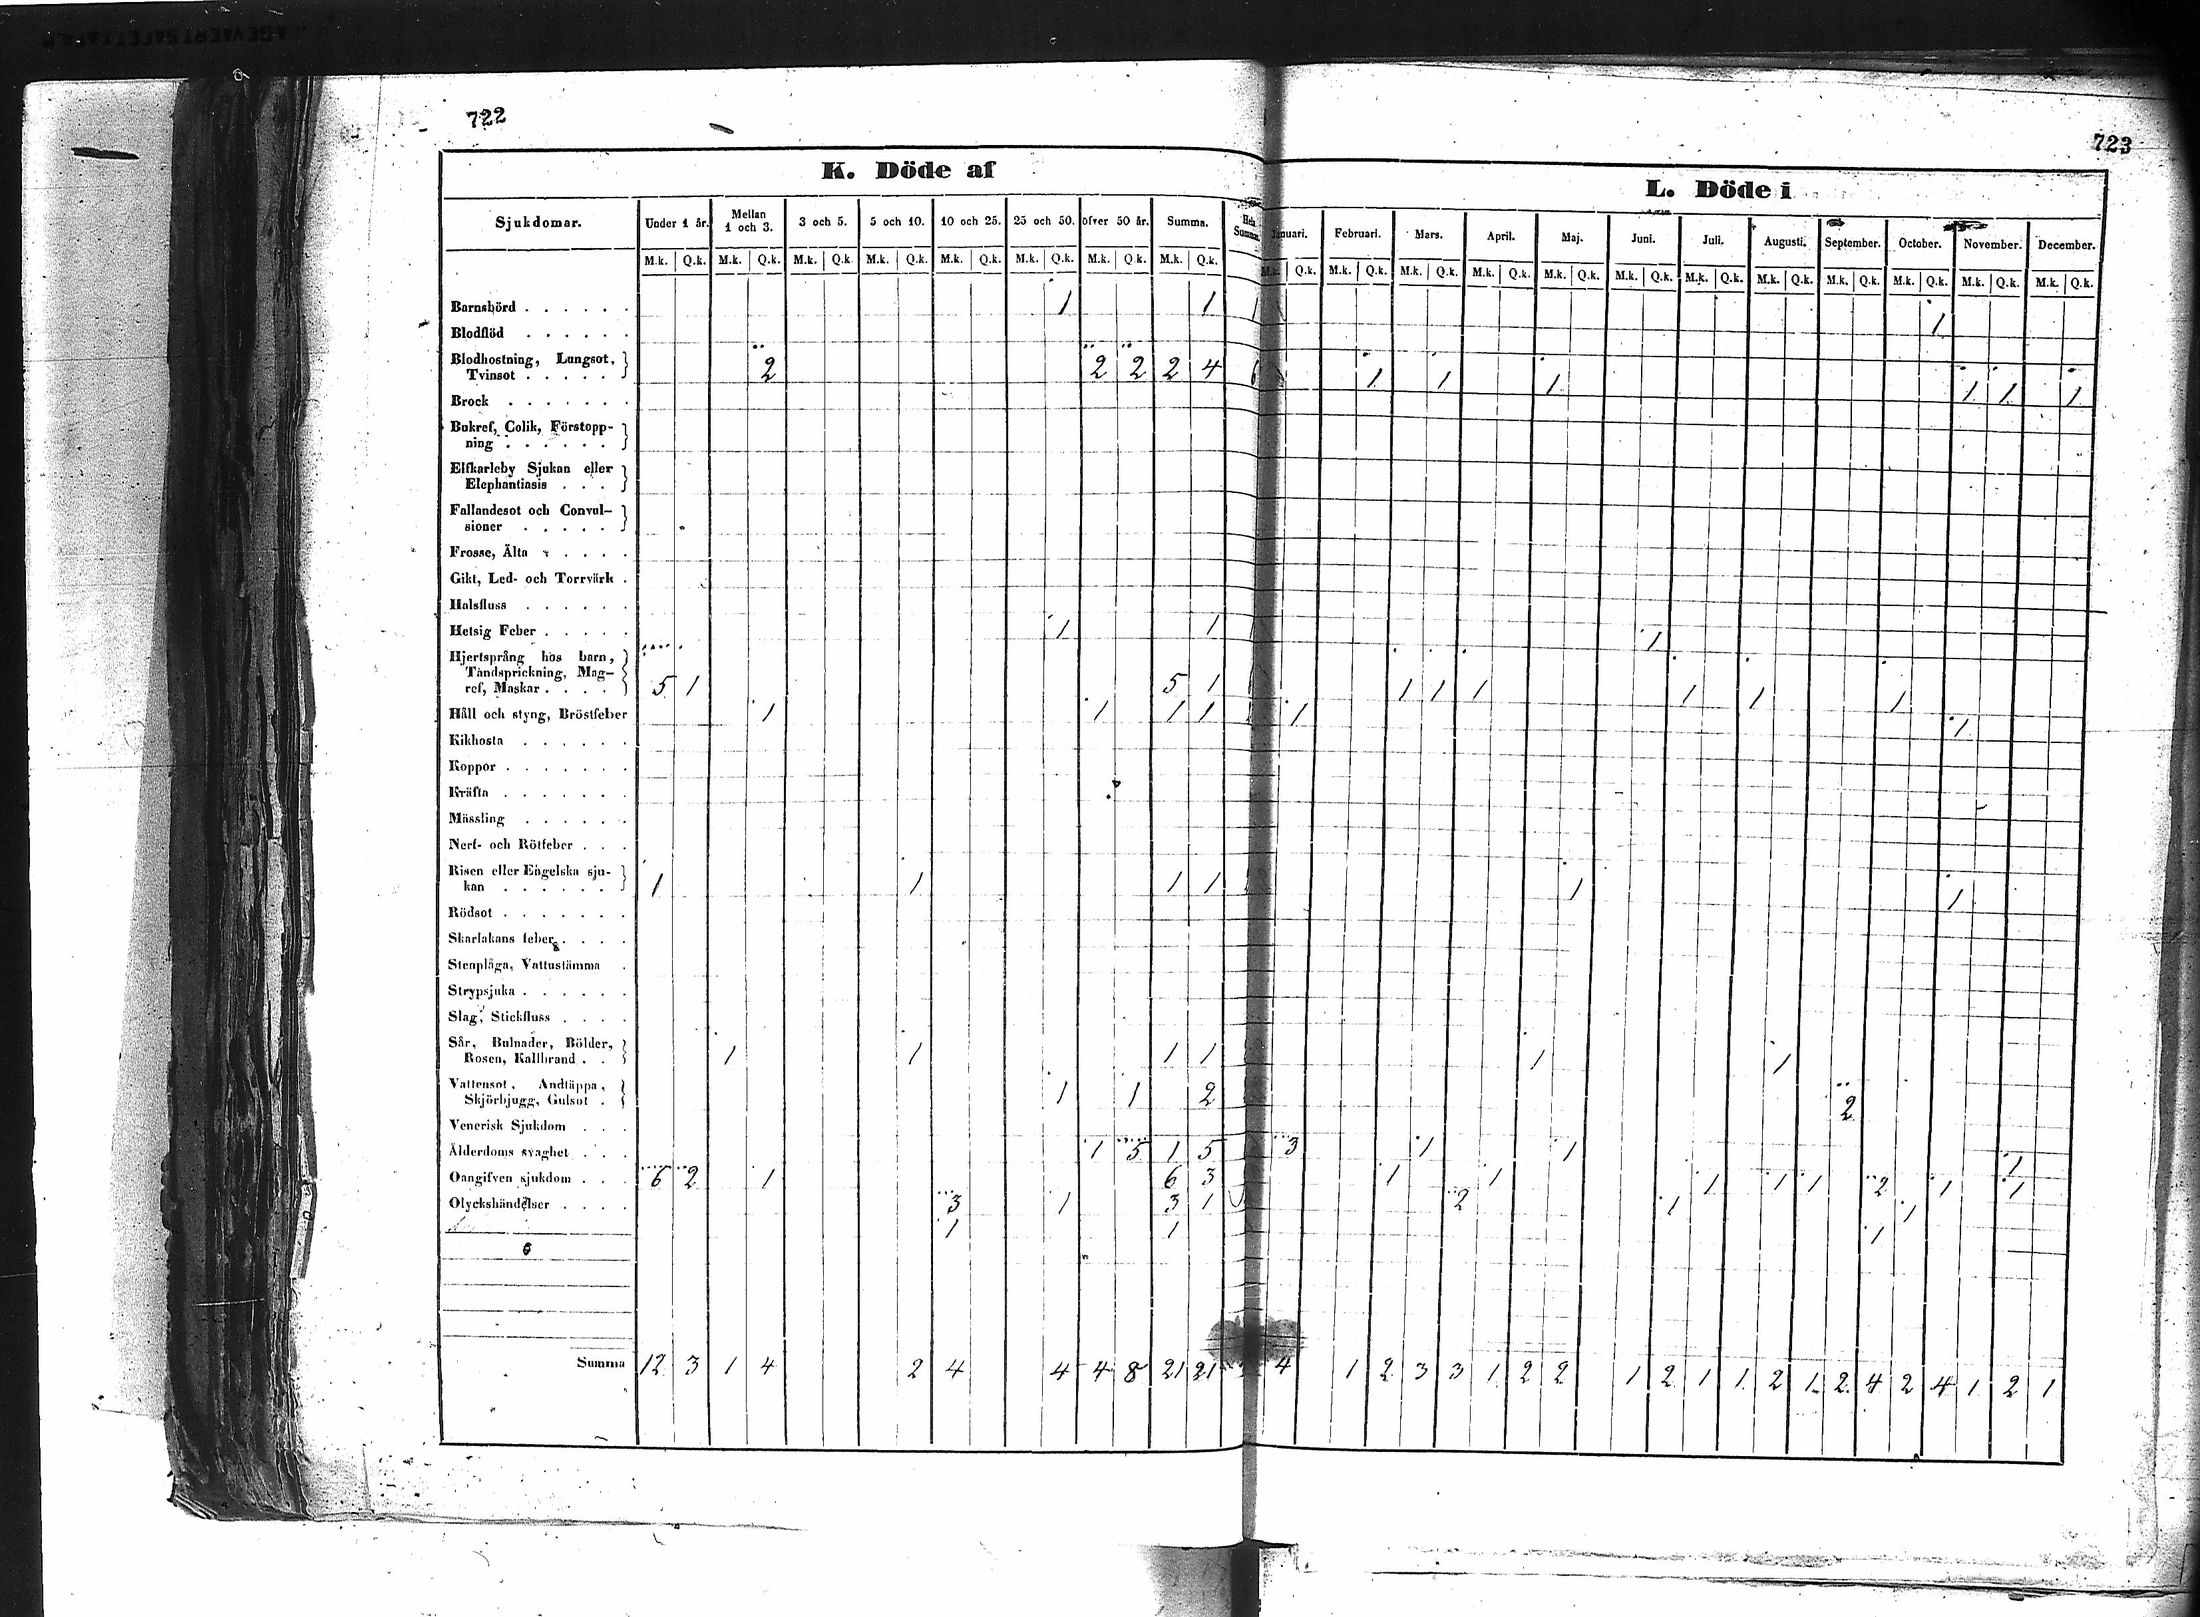 722
K. Döde af
Sjukdomar. Under 1 år. Mellan 1 och 3. 3 och 5. 5 och 10. 10 och 25. 25 och 50. öfver 50 år. Summa. Hela Summa.
M.k. Q.k. M.k. Q.k. M.k. Q.k. M.k. Q.k. M.k. Q.k. M.k. Q.k. M.k. Q.k. M.k. Q.k.
Barnsbörd . . . . . . 1 1 1
Blodflöd . . . . . .
Blodhostning, Lungsot,
Tvinsot . . . . . 2 2 2 2 4 6
Brock . . . . . . .
Bukref, Colik, Förstopp-
ning . . . . . .
Elfkarleby Sjukan eller
Elephantiasis . . .
Fallandesot och Convul-
sioner . . . . .
Frosse, Älta . . . .
Gikt, Led- och Torrvärk .
Halsfluss . . . . . .
Hetsig Feber . . . . . 1 1
Hjertsprång hos barn,
Tandsprickning, Mag-
ref, Maskar . . . . 5 1 5 1
Håll och styng, Bröstfeber 1 1 1 1
Kikhosta . . . . . .
Koppor . . . . . . .
Kräfta . . . . . . .
Mässling . . . . . .
Nerf- och Rötfeber . . .
Risen eller Engelska sju-
kan . . . . . . 1 1 1 1
Rödsot . . . . . . .
Skarlakans feber . . . .
Stenplåga, Vattustämma .
Strypsjuka . . . . . .
Slag, Stickfluss . . . .
Sår, Bulnader, Bölder,
Rosen, Kallbrand . . 1 1 1 1
Vattensot, Andtäppa,
Skjörbjugg, Gulsot . 1 1 2
Venerisk Sjukdom . . .
Ålderdoms svaghet . . . 1 5 1 5
Oangifven sjukdom . . . 6 2 1 6 3
Olyckshändelser . . . . 3 1 3 1
1 1
Summa 12 3 1 4 2 4 4 4 8 21 21
723
L. Döde i
Januari. Februari. Mars. April. Maj. Juni. Juli. Augusti. September. October. November. December.
M.k. Q.k. M.k. Q.k. M.k. Q.k. M.k. Q.k. M.k. Q.k. M.k. Q.k. M.k. Q.k. M.k. Q.k. M.k. Q.k. M.k. Q.k. M.k. Q.k. M.k. Q.k.
1
1 1 1 1 1 1
1
1 1 1 1 1 1
1 1
1 1
1 1
2
3 1 1 1
1 1 1 1 1 2 1 1
2 1 1
1
4 1 2 3 3 1 2 2 1 2 1 1 2 1 2 4 2 4 1 2 1